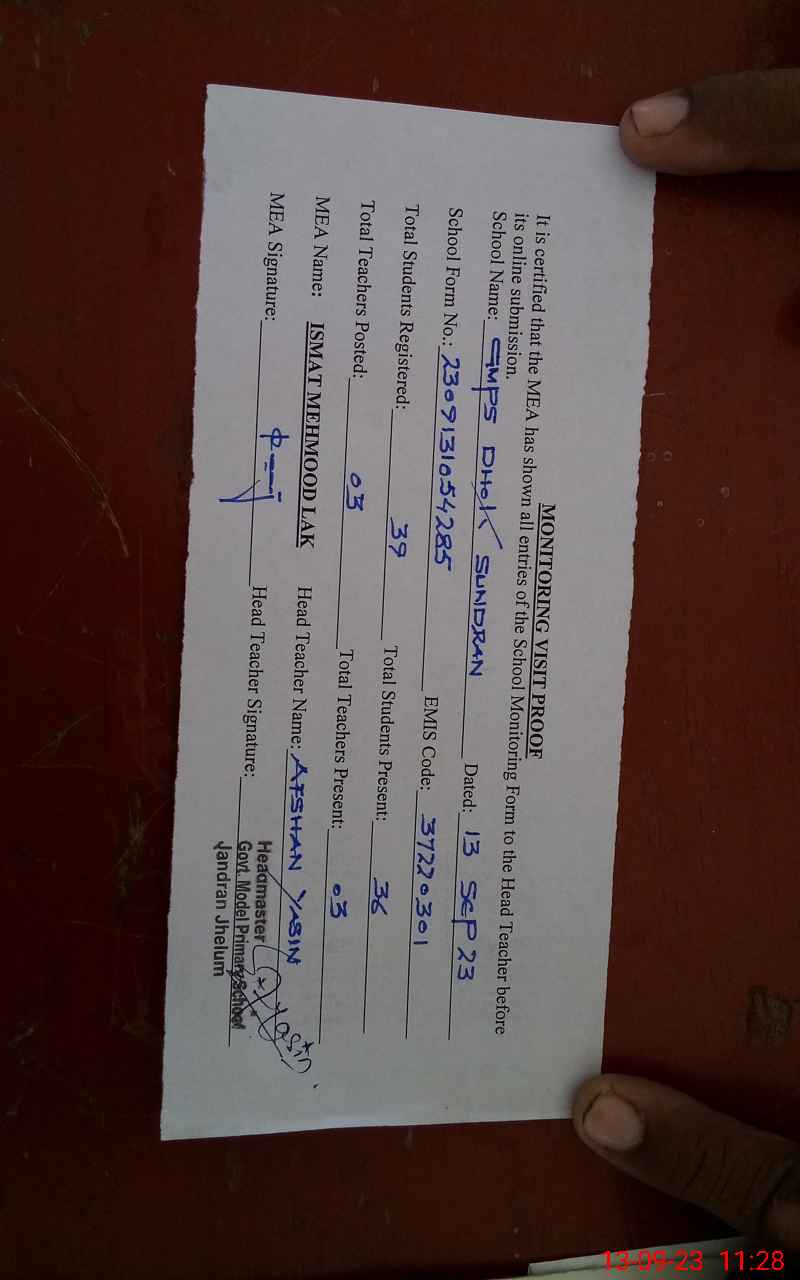 MONITORING VISIT PROOF
It is certified that the MEA has shown all entries of the School Monitoring Form to the Head Teacher before
its online submission.
School Name: GMPS DHOK SUNDRAN Dated: 13 SEP 23
School Form No.: 2309131054285 EMIS Code: 37220301
Total Students Registered: 39 Total Students Present: 36
Total Teachers Posted: 03 Total Teachers Present: 03
MEA Name: ISMAT MEHMOOD LAK Head Teacher Name: AFSHAN YASIN
MEA Signature: Head Teacher Signature:
Headmaster
Govt. Model Primary School
Jandran Jhelum
13-09-23 11:28